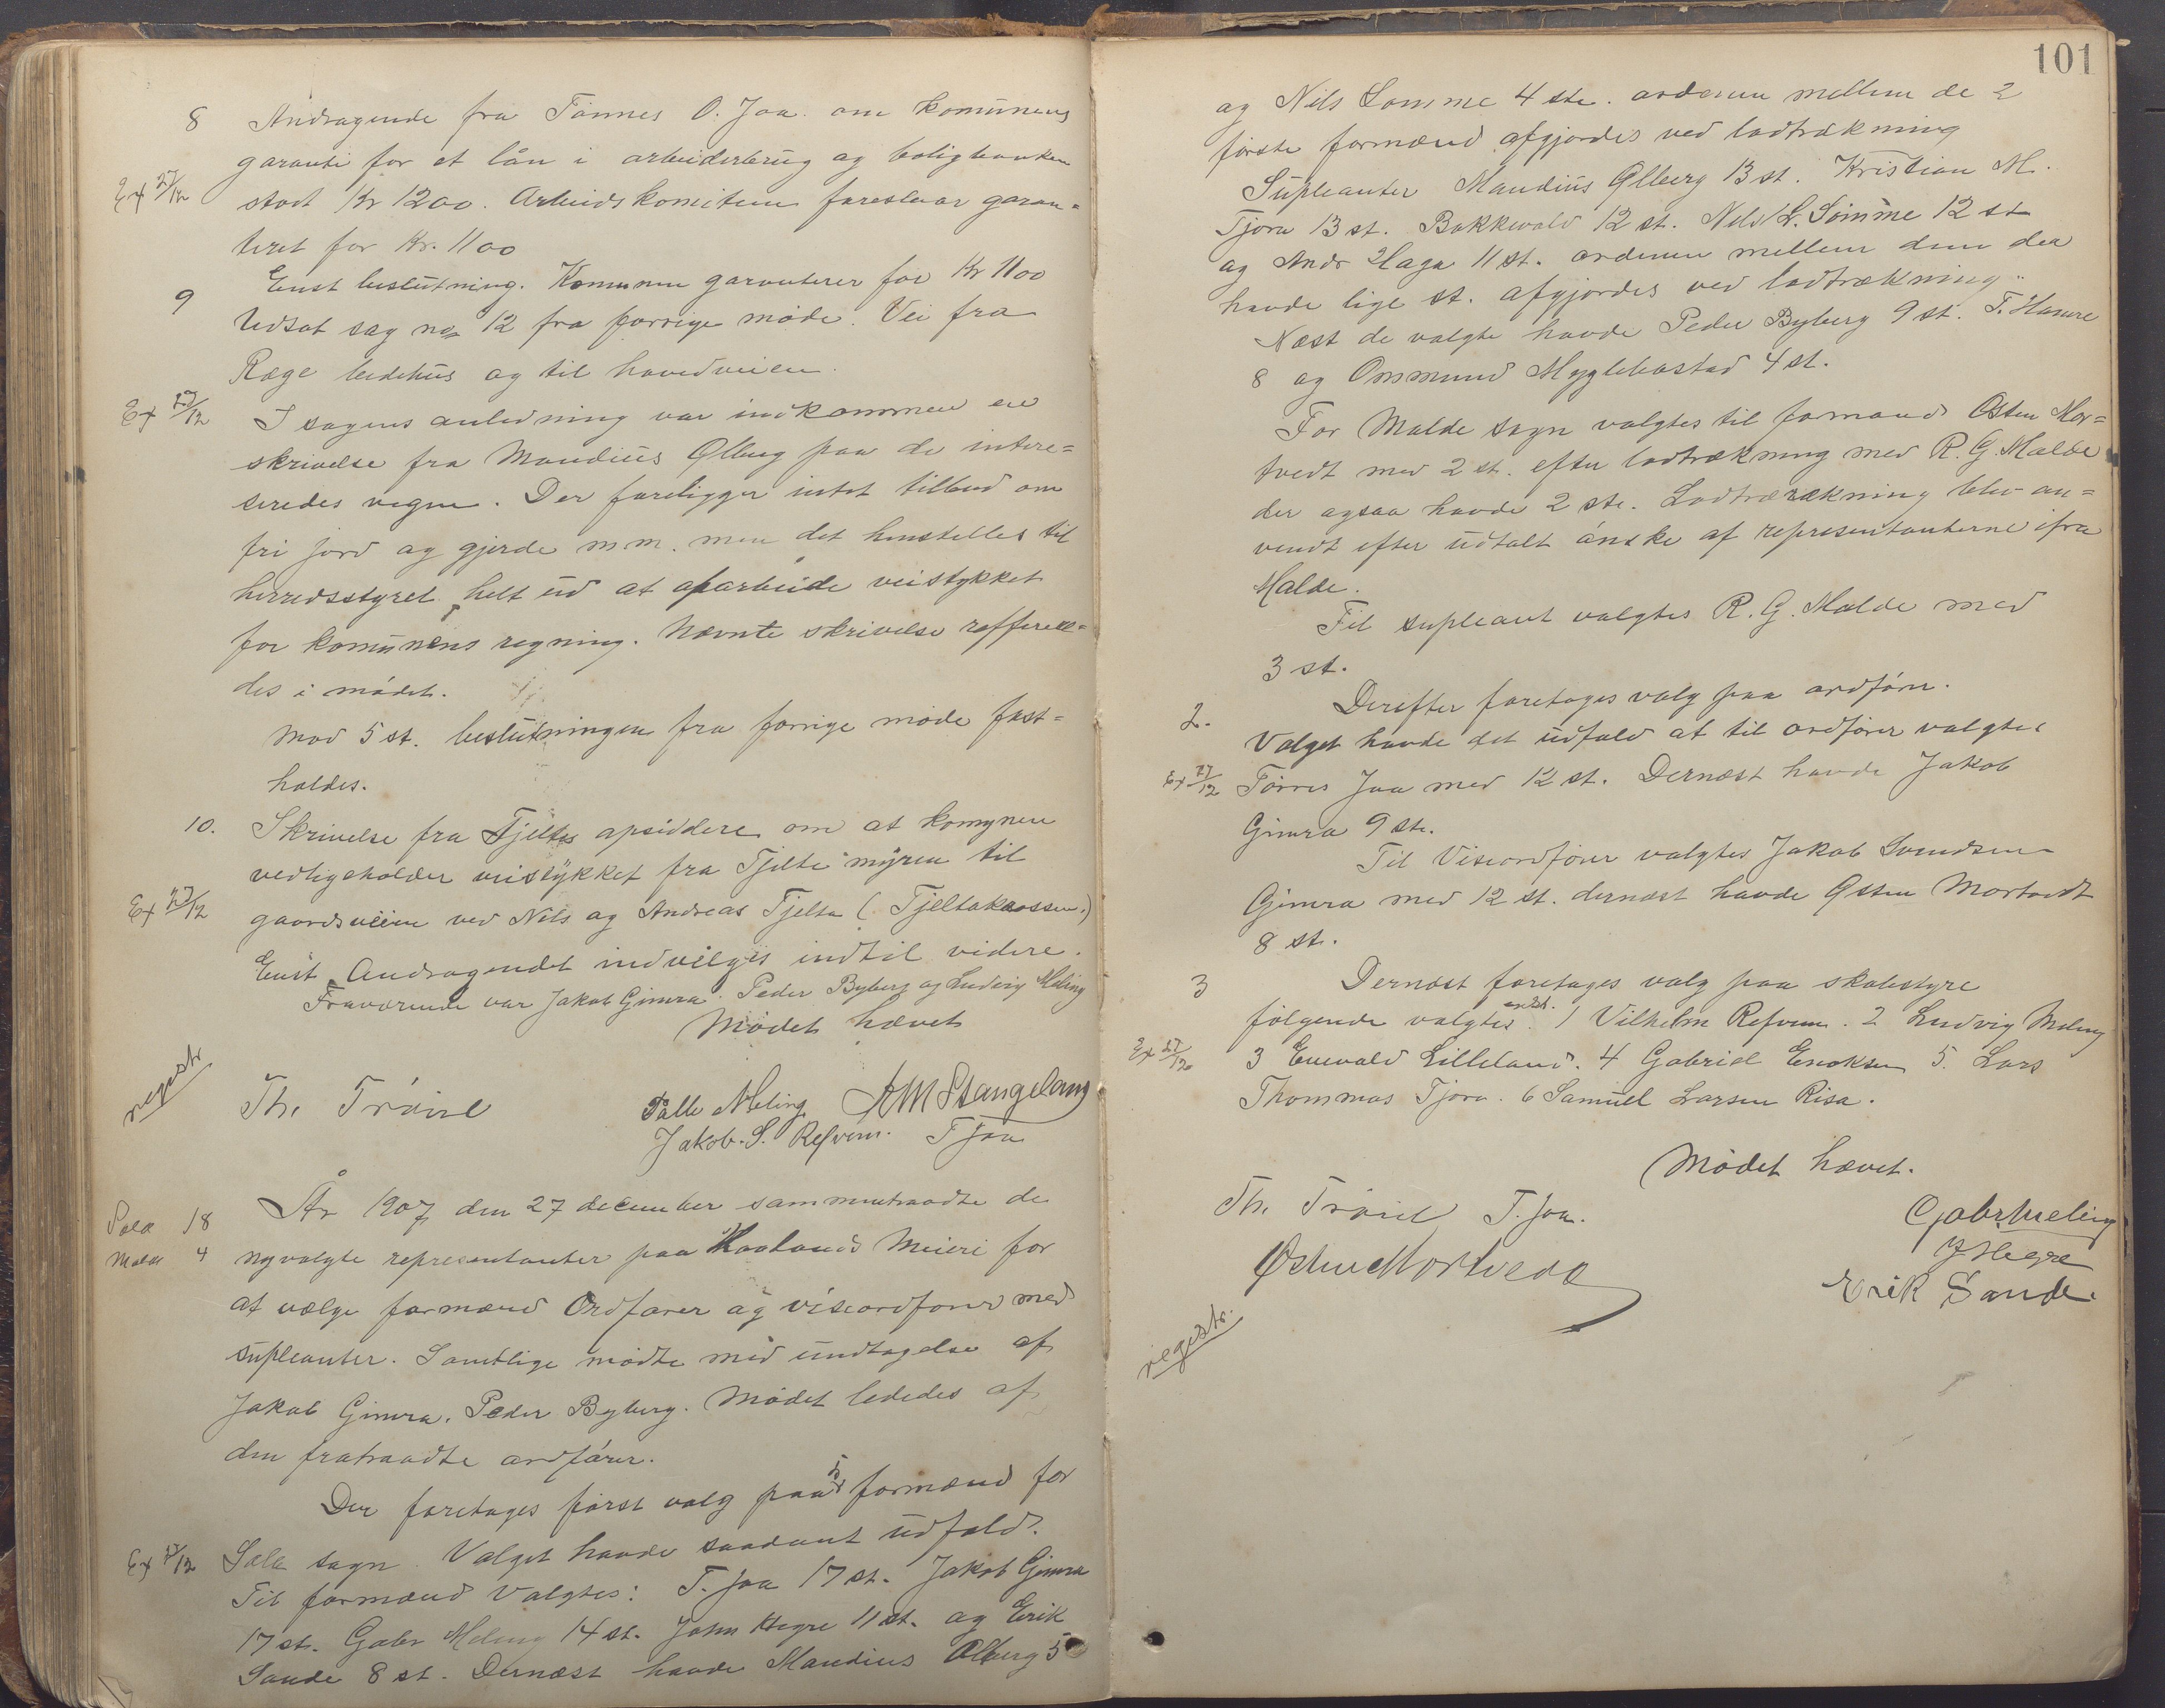 8 Andragende fra Tønnes O. Jaa. om komunens
garanti for et lån i arbeiderbrug og boligbanken
Ex 27/12 stort Kr 1200. Arbeidskomiteen foreslaar garan=
teret for Kr. 1100
Enst beslutning. Komunen garanterer for Kr 1100
9 Udsat sag no 12 fra forrige møde. Vei fra
Ræge bedehus og til hovedveien.
Ex 27/12 I sagens anledning var indkommen en
skrivelse fra Maudius Ølberg paa de intere=
seredes vegne. Der foreligger intet tilbud om
fri jord og gjerde m m. men det henstilles til
herredsstyret helt ud at oparbeide veistykket
for komunens regning. Nævnte skrivelse reffereer=
des i mødet.
Mod 5 st. beslutningen fra forrige møde fast=
holdes.
10. Skrivelse fra Tjeltes opsiddere om at komunen
vedligeholder veistykket fra Tjelte myren til
Ex 27/12 gaardsveien ved Nils og Andreas Tjelta (Tjeltakrossen.)
Enst Andragendet indvilges indtil videre.
Fraværende var Jakob Gimra. Peder Byberg og Ludvig Meling
Mødet hævet
regestr
Th. Trøim Palle Meling AM Stangeland
Jakob. S. Refvem. T Jaa
Sola 18 År 1907 den 27 december sammentraadte de
Malde 4 nyvalgte representanter paa Haalands Meieri for
at vælge formænd Ordfører og viseordfører med
supleanter. Samtlige mødte med undtagelse af
Jakob Gimra. Peder Byberg. Mødet lededes af
den fratraadte ordfører.
Der foretages først valg paa 5 formænd for
Ex 27/12 Sola sogn. Valget havde saadant udfald.
Til formænd valgtes: T. Jaa 17 st. Jakob Gimra
17 st. Gabr Meling 14 st. John Hegre 11 st. og Erik
Sande 8 st. Dernæst havde Maudius Ølberg 5
101
og Nils Somme 4 ste. ordenen mellem de 2
første formænd afgjordes ved lodtrækning
Supleanter Maudius Ølberg 13 st. Kristian M.
Tjora 13 st. Bakkevold 12 st. Nils L. Sømme 12 st
og Andr Haga 11 st. ordenen mellem dem der
havde lige st. afgjordes ved lodtrækning
Næst de valgte havde Peder Byberg 9 st. T. Hamre
8 og Ommund Myglebostad 4 st.
For Malde sogn valgtes til formand Østen Mor=
tvedt med 2 st. efter lodtrækning med R. G. Malde
der ogsaa havde 2 ste. Lodtrærækning blev an=
vendt efter udtalt ønske af representanterne ifra
Malde.
Til supleant valgtes R. G. Malde med
3 st.
2. Derefter foretages valg paa ordfører.
Valget havde det udfald at til ordfører valgtes
Ex 27/12 Tørres Jaa med 12 st. Dernæst havde Jakob
Gimra 9 ste.
Til Viseordfører valgtes Jakob Svendsen
Gimra med 12 st. dernæst havde Østen Mortvedt
8 st.
3 Dernæst foretages valg paa skolestyre
følgende valgtes enst. 1 Vilhelm Refvem. 2 Ludvig Meling
Ex 27/12 3 Enevald Lilleland. 4 Gabriel Enoksen 5. Lars
Thommas Tjora. 6 Samuel Larsen Risa.
Mødet hævet.
Th. Trøim T. Jaa. Gabr Meling
J Hegre
Østen Mortvedt Erik Sande.
regestr.